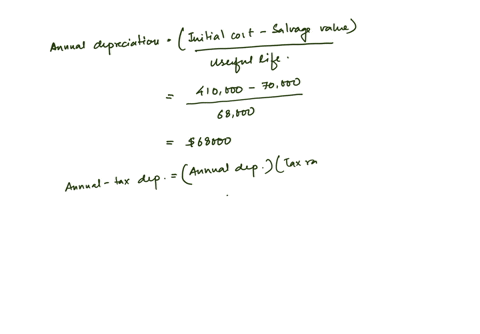 Annual depreciation = (Initial cost - Salvage value)
Useful life.
= 410,000 - 70,000
68,000
= $68000
Annual-tax dep. = (Annual dep.) (Tax ra